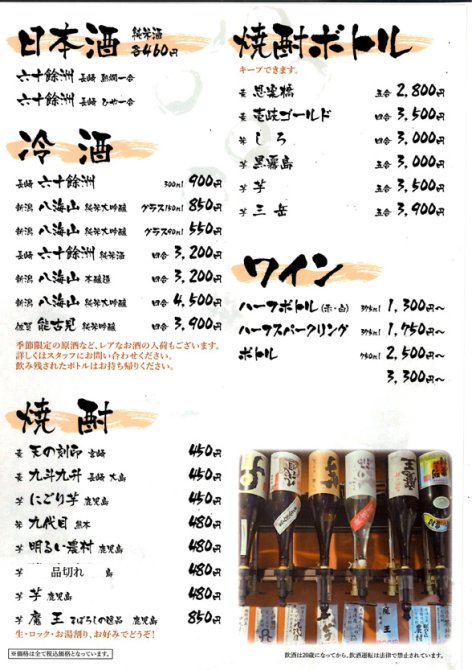 日本酒 純米酒 各460円
六十餘洲 長崎 熱燗一合
六十餘洲 長崎 ひや一合
冷酒
長崎 六十餘洲 300ml 900円
新潟 八海山 純米大吟醸 グラス150ml 850円
新潟 八海山 純米大吟醸 グラス90ml 550円
長崎 六十餘洲 純米酒 四合 3,200円
新潟 八海山 本醸造 四合 3,200円
新潟 八海山 純米大吟醸 四合 4,500円
佐賀 能古見 純米吟醸 四合 3,900円
季節限定の原酒など、レアなお酒の入荷もございます。
詳しくはスタッフにお問い合わせください。
飲み残されたボトルはお持ち帰りください。
焼酎
麦 天の刻印 宮崎 450円
麦 九斗九升 長崎 大島 450円
芋 にごり芋 鹿児島 450円
米 九代目 熊本 480円
芋 明るい農村 鹿児島 480円
品切れ 島 480円
芋 芋 鹿児島 480円
芋 魔王 まぼろしの逸品 鹿児島 850円
生・ロック・お湯割り、お好みでどうぞ!
※価格は全て税込価格となっています。
焼酎ボトル
キープできます。
麦 思案橋 五合 2,800円
麦 壱岐ゴールド 四合 3,500円
米 しろ 四合 3,500円
芋 黒霧島 五合 3,000円
芋 芋 五合 3,500円
芋 三岳 五合 3,900円
ワイン
ハーフボトル(赤・白) 375ml 1,300円〜
ハーフスパークリング 375ml 1,750円〜
ボトル 750ml 2,500円〜
3,300円〜
魔王
飲酒は20歳になってから。飲酒運転は法律で禁止されています。